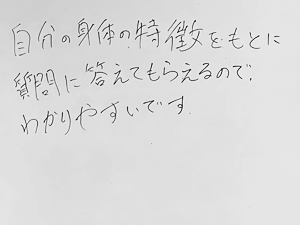 自分の身体の特徴をもとに
質問に答えてもらえるので、
わかりやすいです